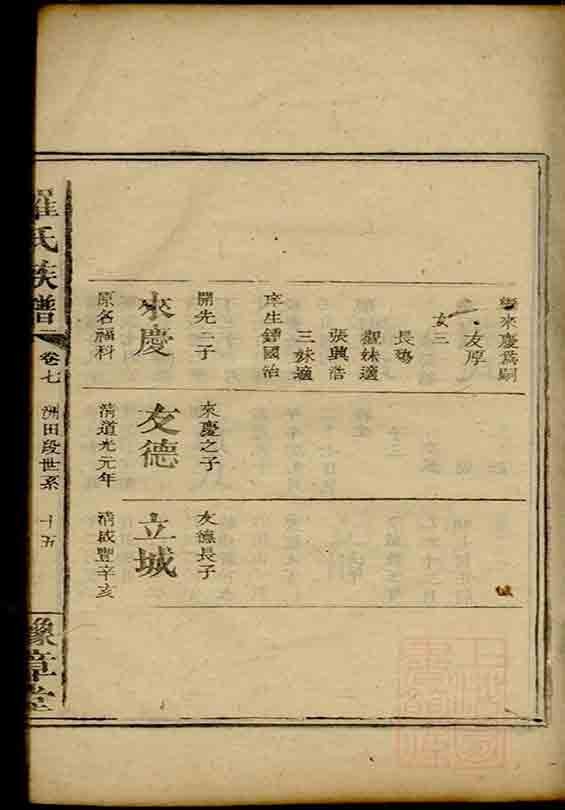 來慶爲嗣
友厚
女三
長殤
觀妹適
張興浩
三妹適
庠生鍾國治
開先三子
來慶
原名福科
來慶之子
友德
清道光元年
友德長子
立城
清咸豐辛亥
羅氏族譜
卷七
洲田段世系
十五
豫章堂